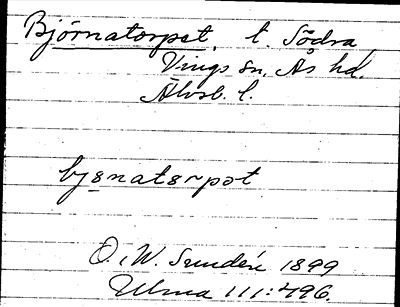 Björnatorpet, t. Södra
Vings sn. Ås hd.
Älvsb. l.
bjsnatsrpət
O. W. Sundén 1899
Ulma 111:496.